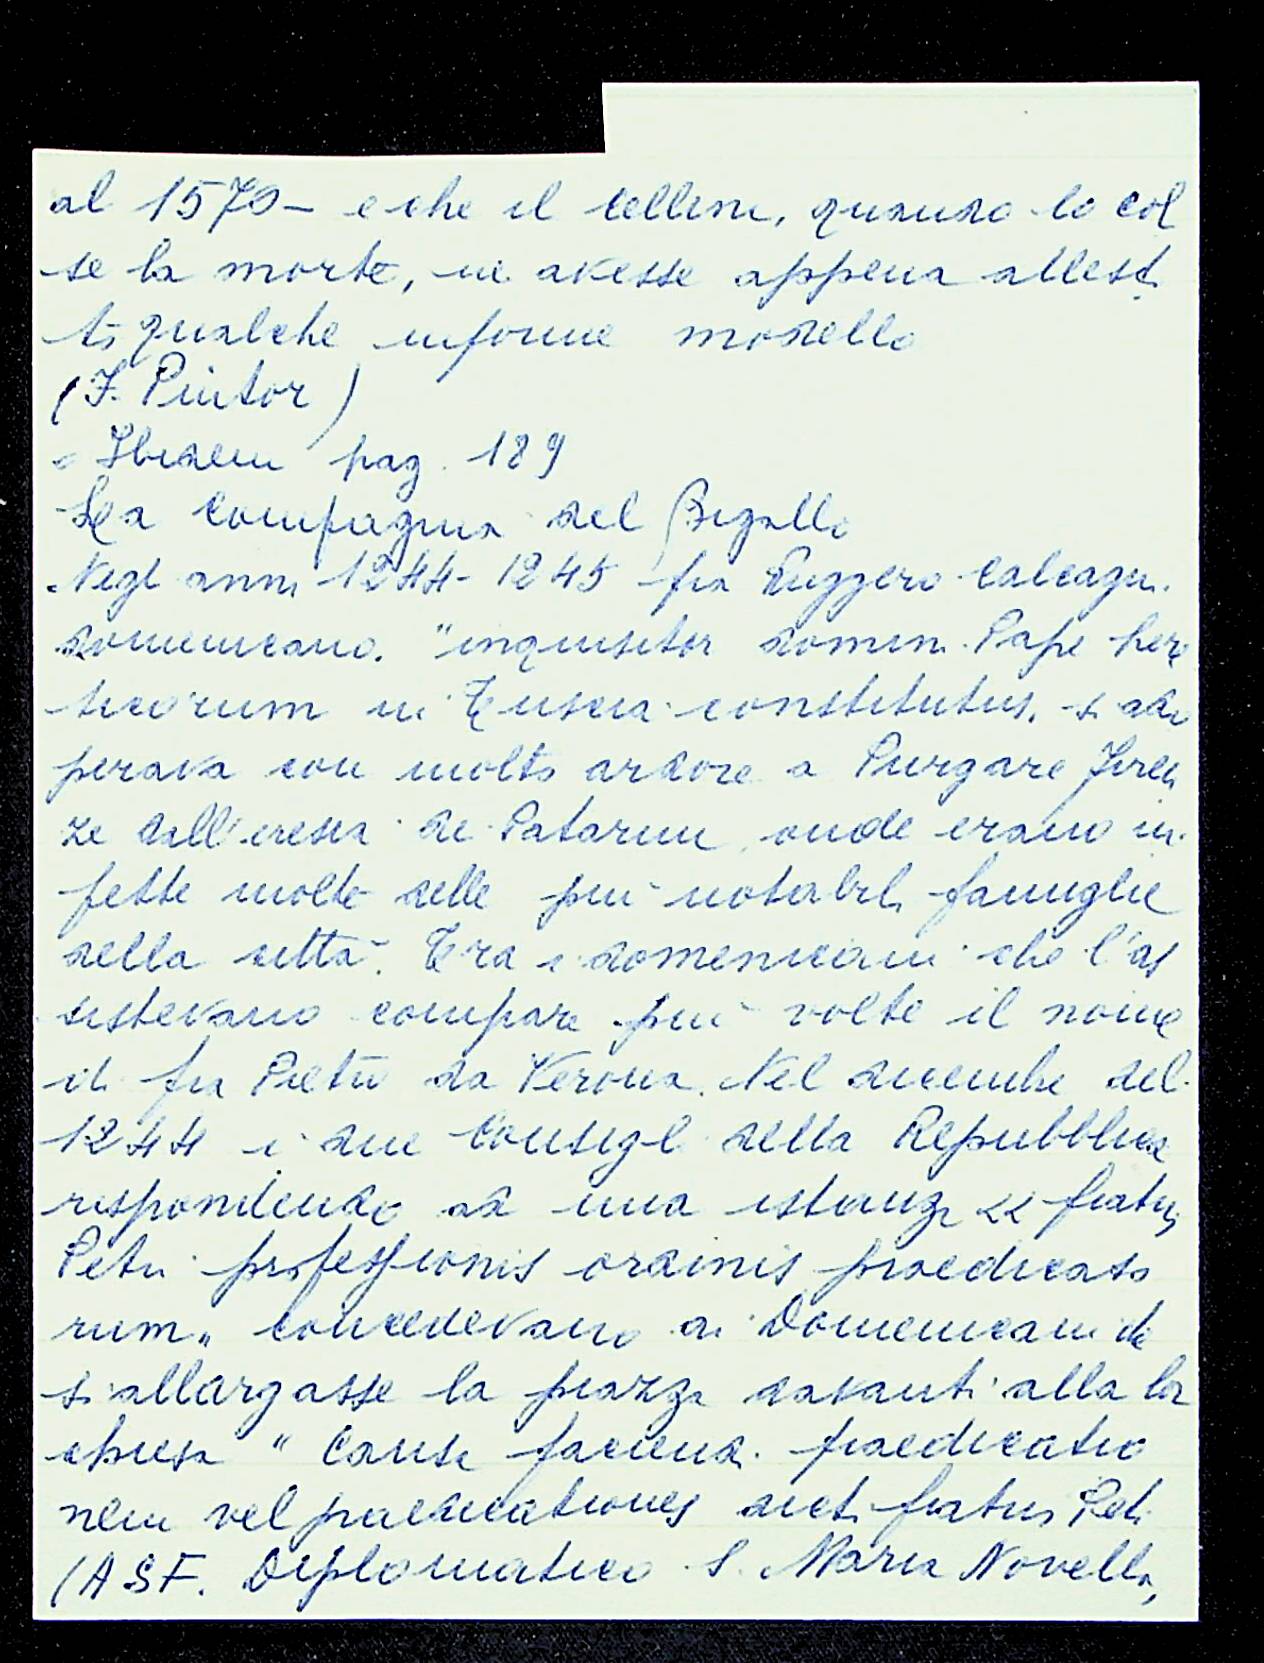 al 1570 - e che il Cellini, quando lo col
se la morte, ne avesse appena allesti
ti qualche informe modello
(F. Pintor)
Ibidem pag. 189
La Compagnia del Bigallo
Negli anni 1244-1245 fra Ruggero Calcagni.
domenicano. "inquisitor domini Pape here
ticorum in Tuscia constitutus. si ado
perava con molto ardore a Purgare Firen
ze dall'eresia dei Patarini, onde erano in
fette molte delle più notabili famiglie
della città. Tra i domenicani che l'as
sistevano compare più volte il nome
di fra Pietro da Verona. Nel dicembre del
1244 i due Consigli della Repubblica
rispondendo ad una istanza << fratris
Petri professionis ordinis praedicato
rum" concedevano ai Domenicani che
si allargasse la piazza davanti alla lor
chiesa " Causa faciendi praedicatio
nem vel praedicationes dicti fratris Petri
(ASF. Diplomatico S. Maria Novella,